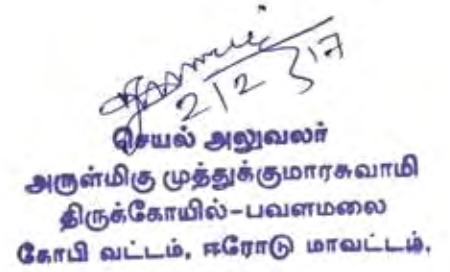 2/12/17
செயல் அலுவலர்
அருள்மிகு முத்துக்குமாரசுவாமி
திருக்கோயில்-பவளமலை
கோபி வட்டம், ஈரோடு மாவட்டம்.